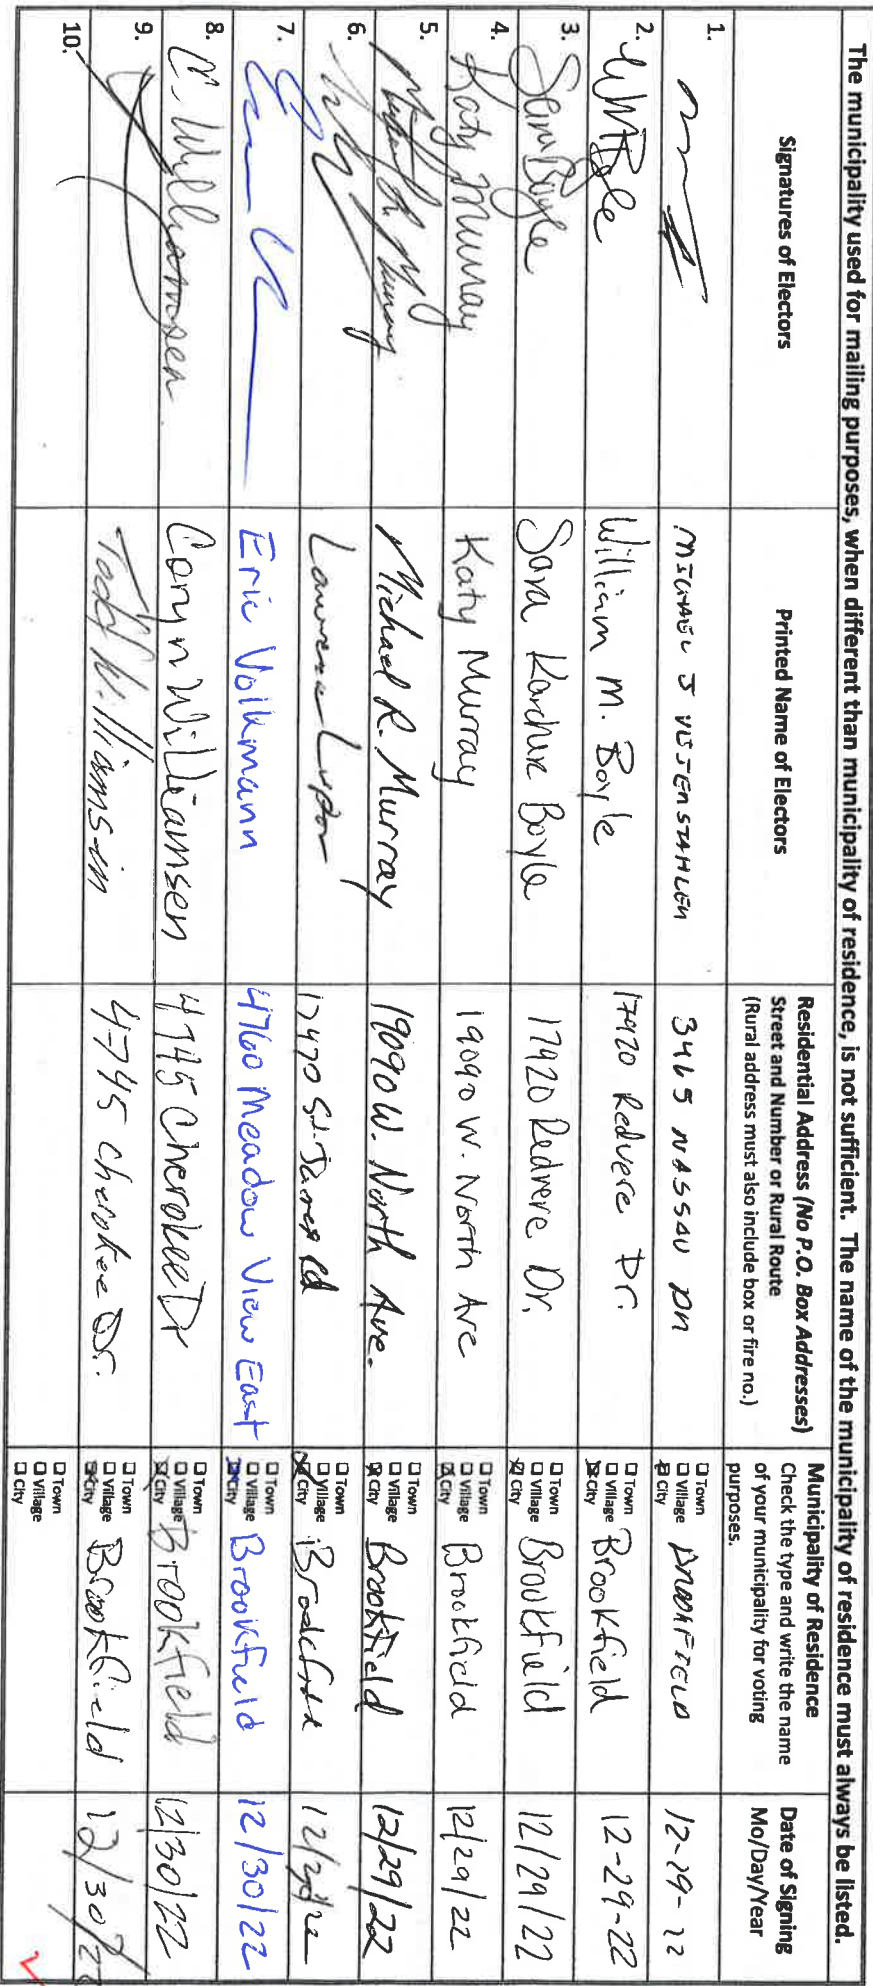 The municipality used for mailing purposes, when different than municipality of residence, is not sufficient. The name of the municipality of residence must always be listed.
Signatures of Electors
Printed Name of Electors
Residential Address (No P.O. Box Addresses)
Street and Number or Rural Route
(Rural address must also include box or fire no.)
Municipality of Residence
Check the type and write the name
of your municipality for voting
purposes.
Date of Signing
Mo/Day/Year
1. MICHAEL J 3465 NASSAU DR □ Town □ Village □ City BROOKFIELD 12-29-22
2. WM Boyle William M. Boyle 17920 Redvere Dr. □ Town □ Village □ City Brookfield 12-29-22
3. Sara Boyle Sara Karcher Boyle 17920 Redvere Dr. □ Town □ Village □ City Brookfield 12/29/22
4. Katy Murray Katy Murray 19090 W. North Ave □ Town □ Village □ City Brookfield 12/29/22
5. Michael R. Murray Michael R. Murray 19090 W. North Ave. □ Town □ Village □ City Brookfield 12/29/22
6. Lawrence 17470 St. James Rd □ Town □ Village □ City Brookfield
7. Eric Volkmann 4760 Meadow View East □ Town □ Village □ City Brookfield 12/30/22
8. C. Williamsen Caryn Williamsen 4745 Cherokee Dr □ Town □ Village □ City Brookfield 12/30/22
9. Todd Williamsen 4745 Cherokee Dr. □ Town □ Village □ City Brookfield 12/30/22
10. □ Town □ Village □ City